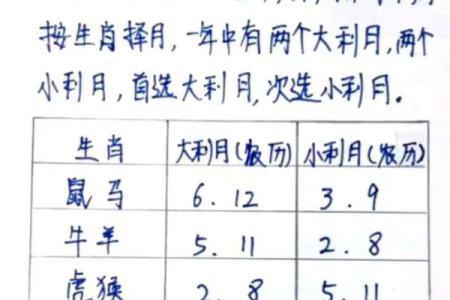 按生肖择月，一年中有两个大利月，两个
小利月，首选大利月，次选小利月。
生肖 大利月(农历) 小利月(农历)
鼠马 6.12 3.9
牛羊 5.11 2.8
虎猴 2.8 5.11